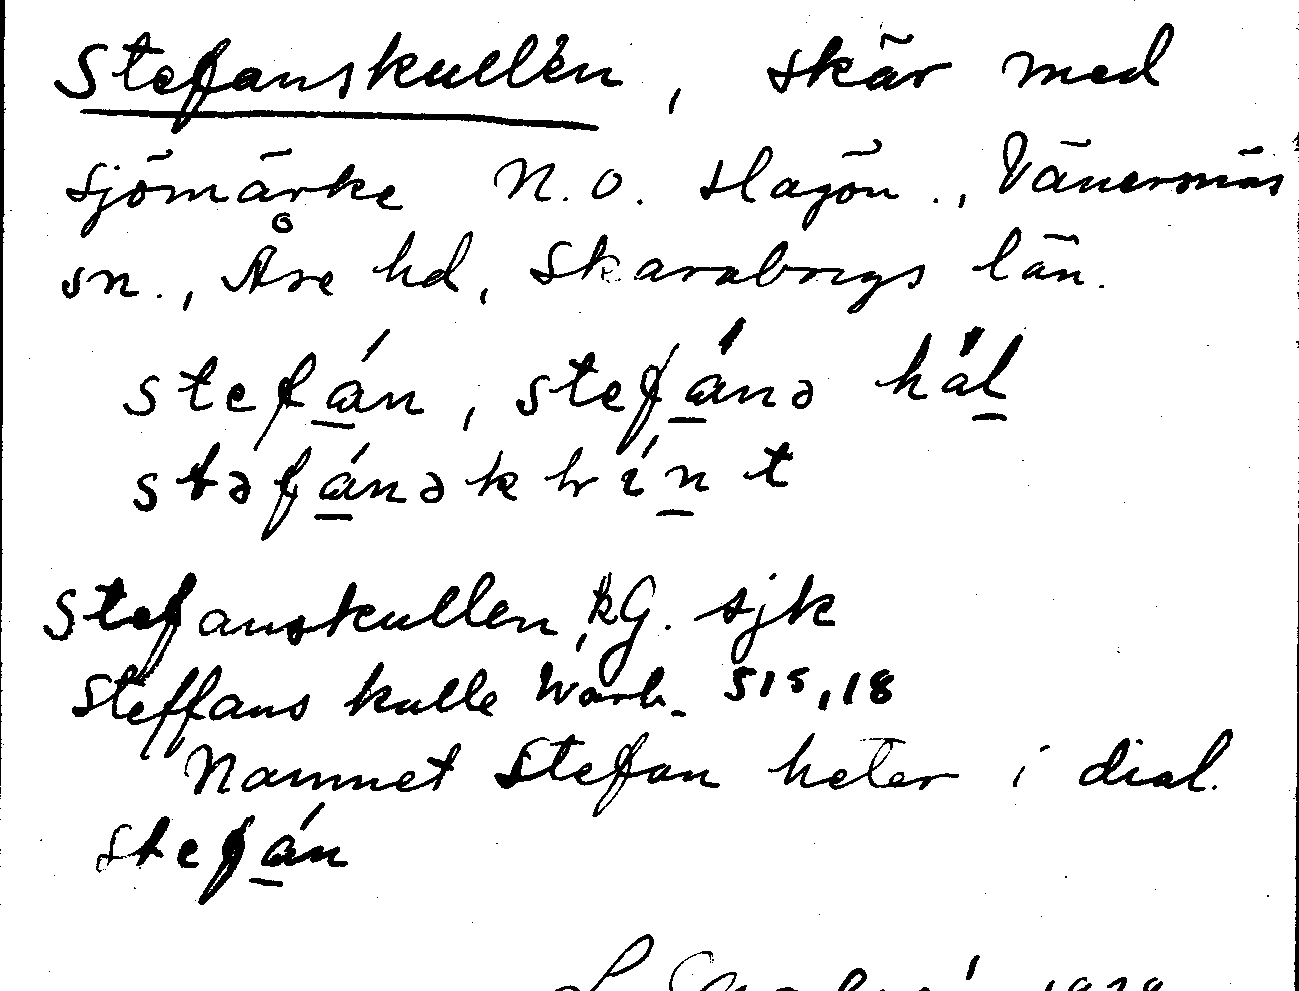 Stefanskullen, skär med
sjömärke N.O. Slagön., Vänersnäs
sn., Åse hd, Skaraborgs län.
stefán, stefánə hál
stəfánəklínt
Stefanskullen, kG. sjk
Steffans kulle 515,18
Namnet Stefan heter i dial.
stefán